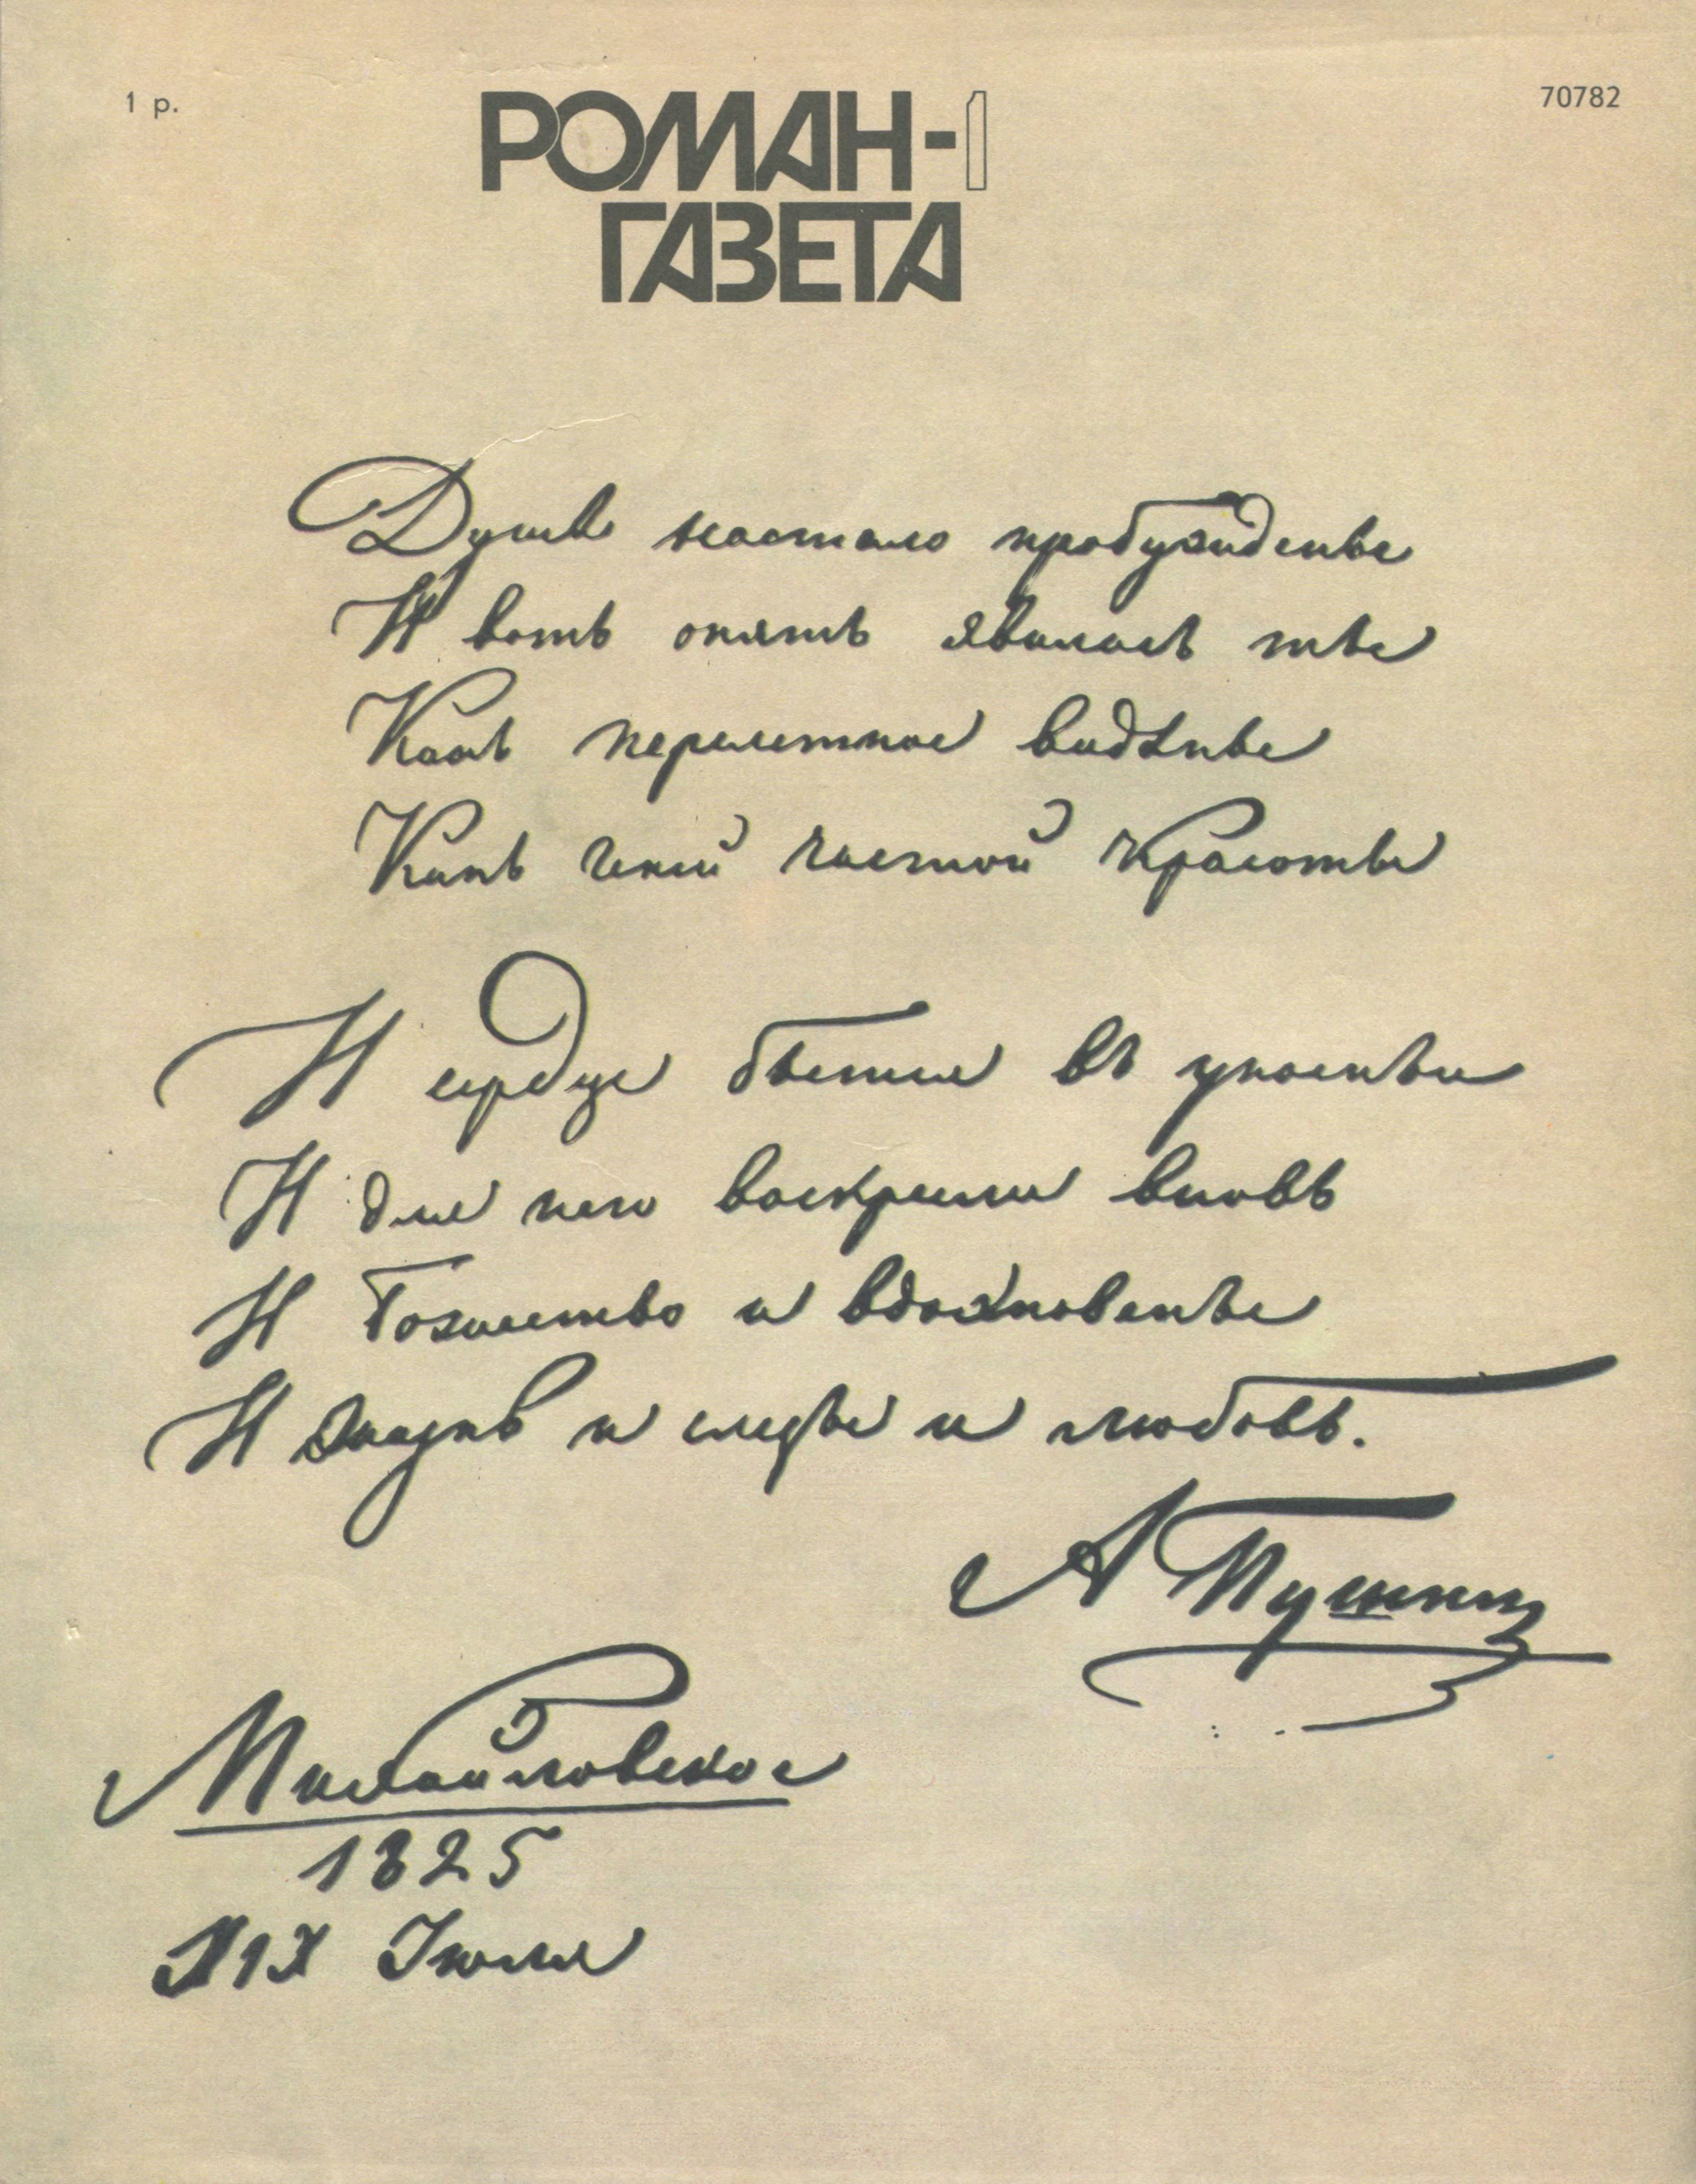 1 р.
70782
РОМАН-1
ГАЗЕТА
Душѣ настало пробужденье
И вотъ опять явилась ты
Какъ перелетное видѣнье
Какъ Гений чистой красоты
И сердце бьется въ упоеньи
И для него воскресли вновь
И Божество и вдохновенье
И жизнь и слезы и любовь.
А Пушкин
Михайловское
1825
XIX Июля